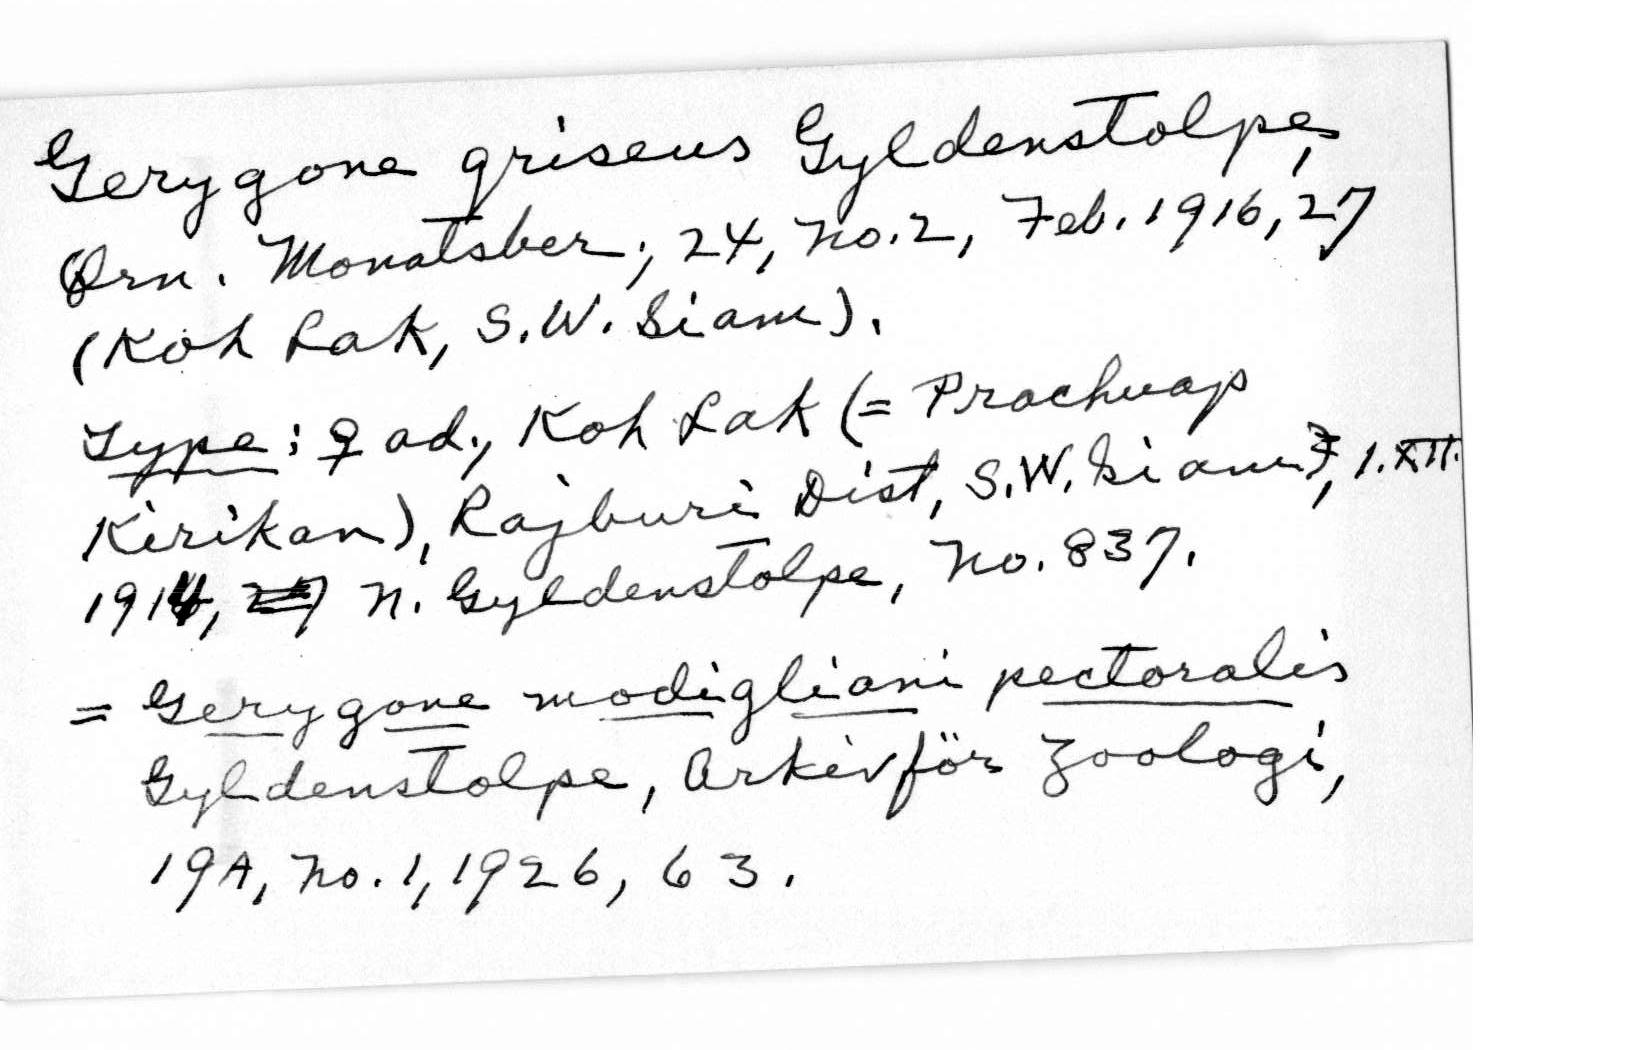 Gerygone griseus Gyldenstolpe,
Orn. Monatsber; 24, no. 2, Feb. 1916, 27
(Koh Lak, S.W. Siam).
Type: ♀ ad., Koh Lak (= Prachuap
Kirikan), Rajburi Dist, S.W. Siam, 1.XII.
1914, N. Gyldenstolpe, no. 837.
= Gerygone modigliani pectoralis
Gyldenstolpe, Arkiv för Zoologi,
19A, no. 1, 1926, 63.